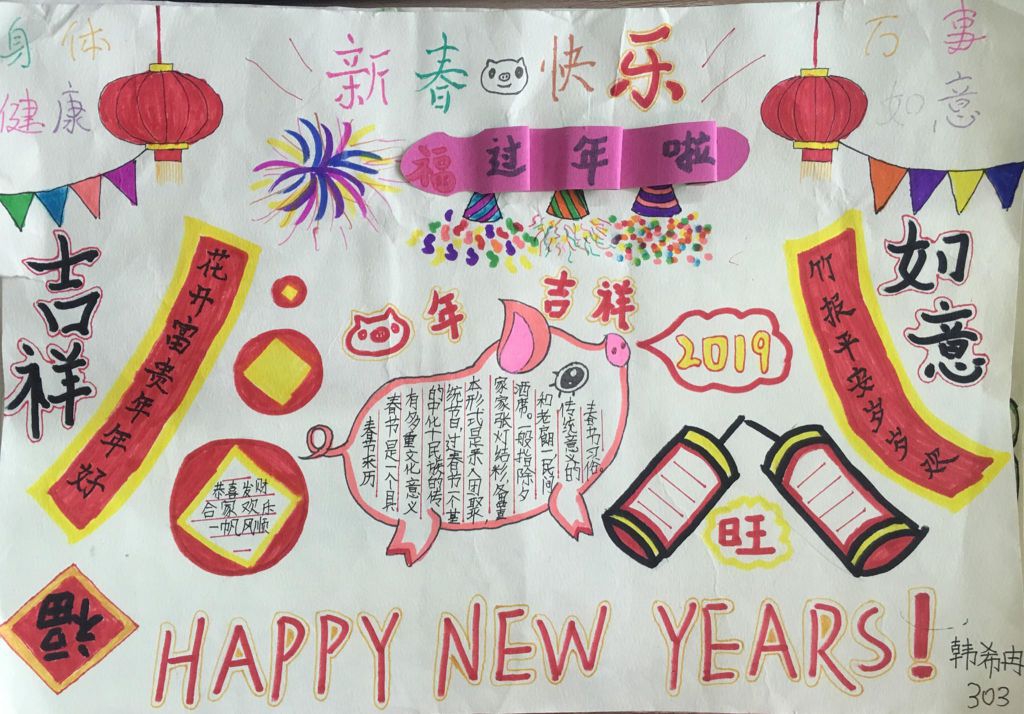 身体
健康
新春快乐
万事
如意
福过年啦
吉祥
如意
花开富贵年年好
竹报平安岁岁欢
年吉祥
2019
春节来历
春节是一个具
有多重文化意义
的中化十民族的传
统节日,过春节一个基
本形式是亲人团聚,
家家张灯结彩,备置
酒席。一般指除夕
和老朝一民间
传统意义的
春节习俗。
恭喜发财
合家欢庆
一帆风顺
旺
福
HAPPY NEW YEARS!
韩希冉
303